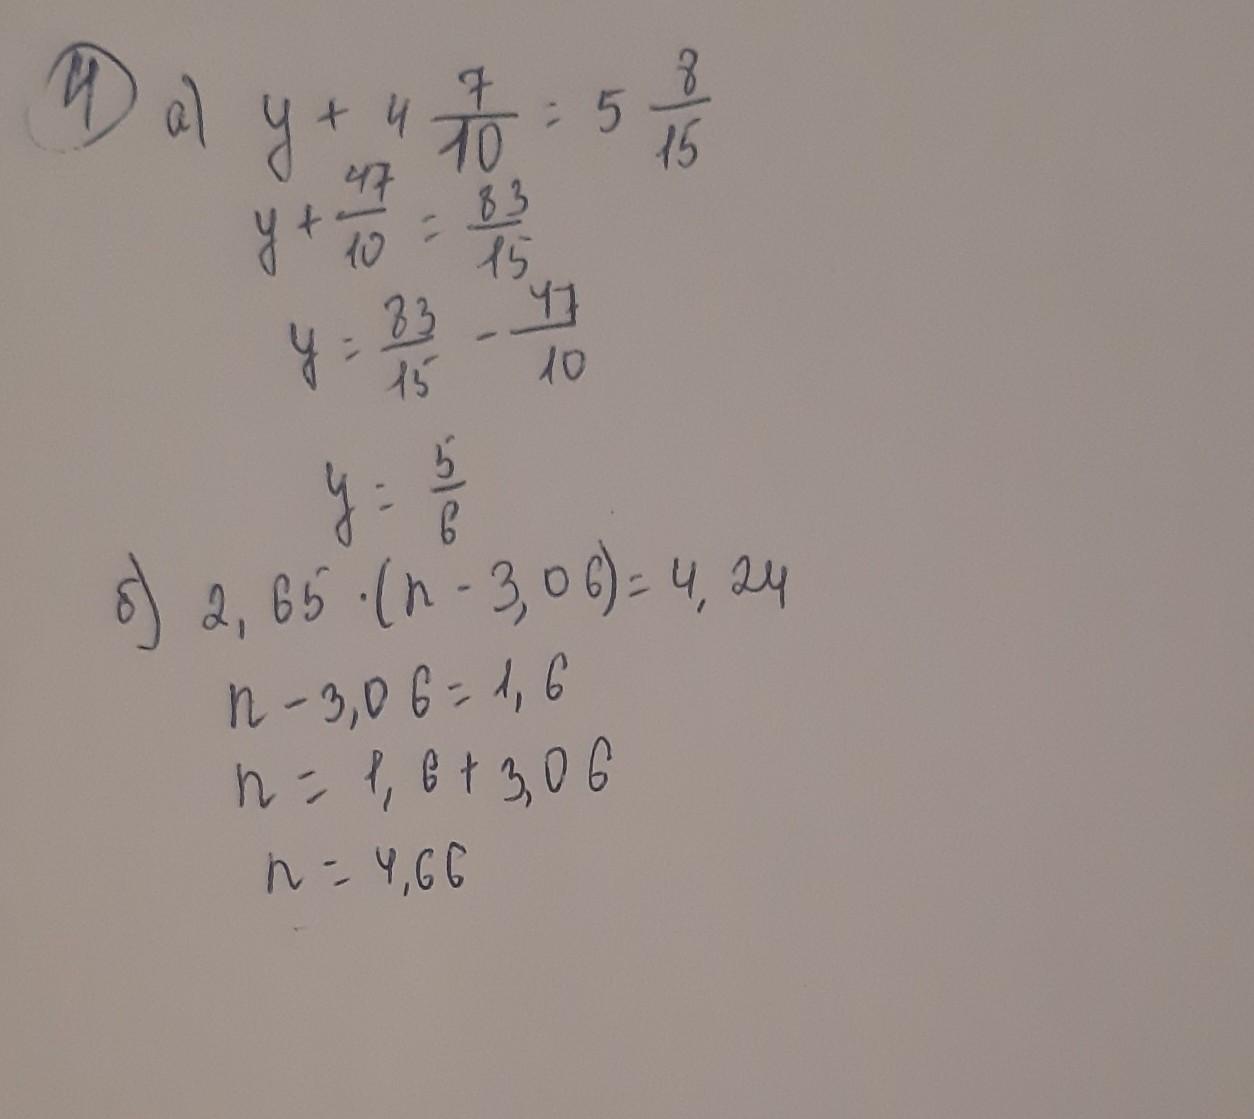 4 а) y + 4 7/10 = 5 8/15
y + 47/10 = 83/15
y = 83/15 - 47/10
y = 5/6
б) 2,65 · (n - 3,06) = 4,24
n - 3,06 = 1,6
n = 1,6 + 3,06
n = 4,66